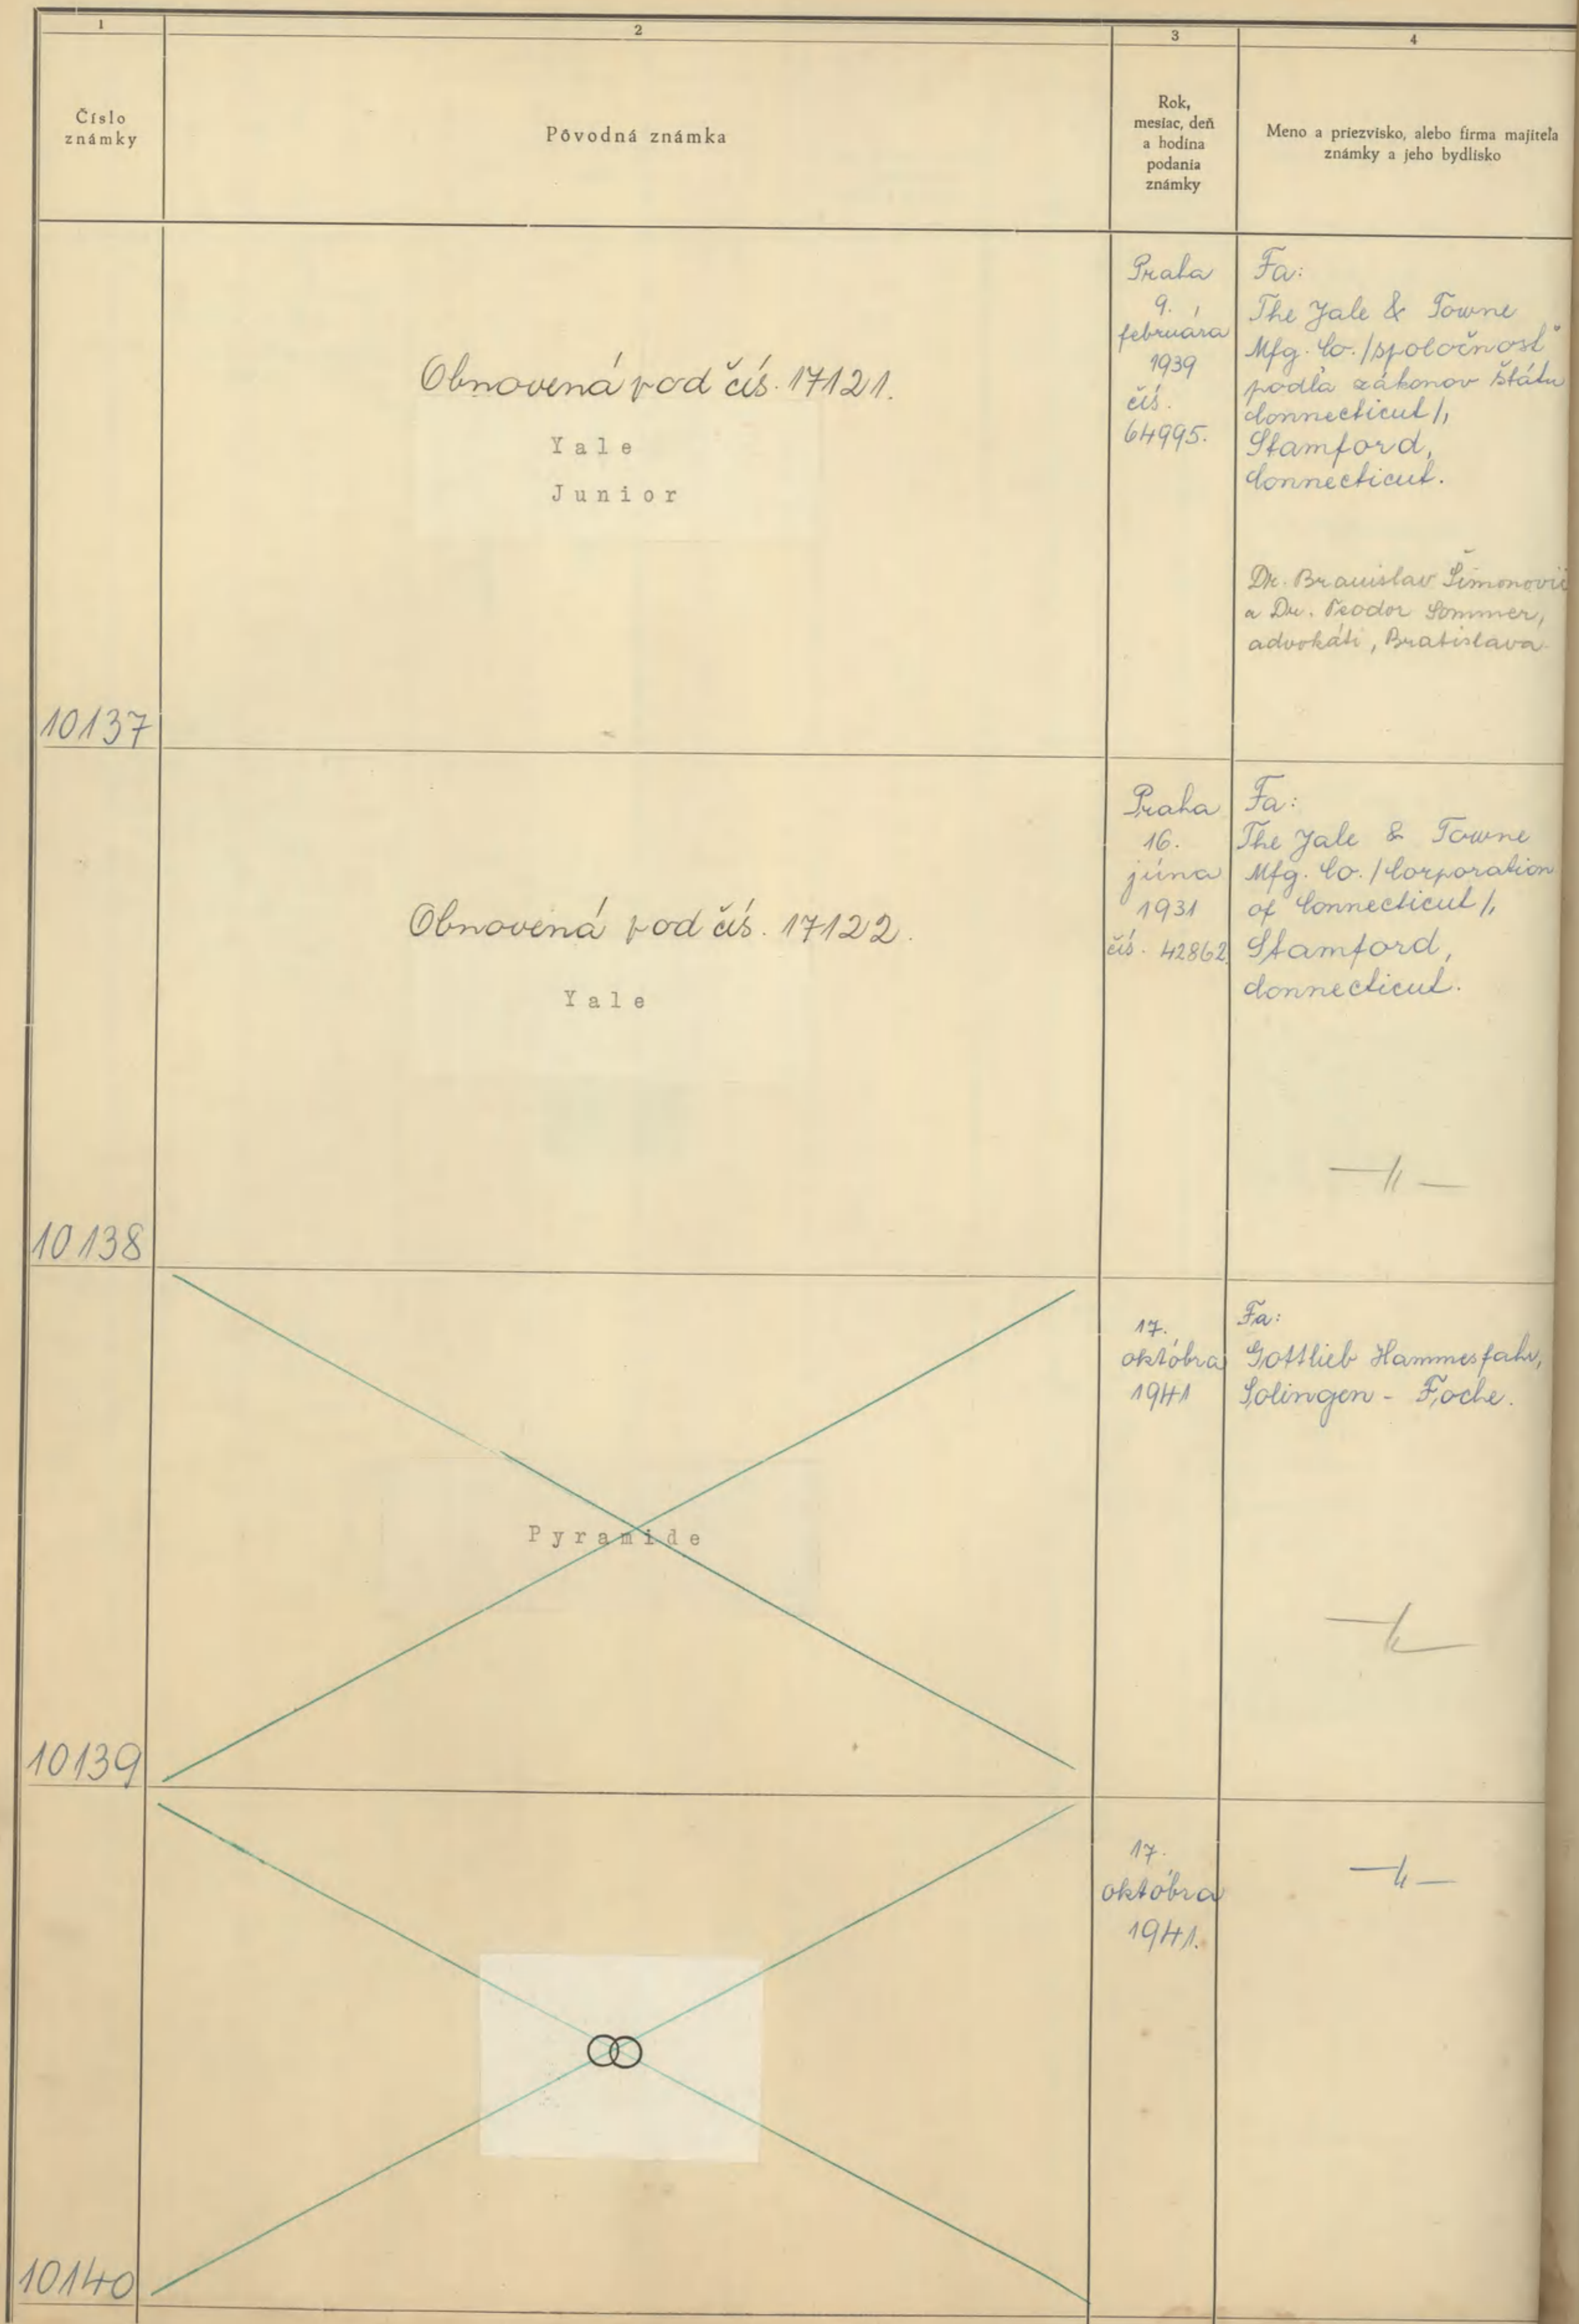 1
2
3
4
Číslo
známky
Pôvodná známka
Rok,
mesiac, deň
a hodina
podania
známky
Meno a priezvisko, alebo firma majiteľa
známky a jeho bydlisko
10137
Obnovená pod čís. 17121.
Yale
Junior
Praha
9.
februára
1939
čís.
64995.
Fa:
The Yale & Towne
Mfg. Co. /spoločnosť
podľa zákonov štátu
Connecticut/,
Stamford,
Connecticut.
Dr. Branislav Šimonovič
a Dr. Teodor Sommer,
advokáti, Bratislava
10138
Obnovená pod čís. 17122.
Yale
Praha
16.
júna
1931
čís. 42862.
Fa:
The Yale & Towne
Mfg. Co. /Corporation
of Connecticut/,
Stamford,
Connecticut.
—〃—
10139
Pyramide
17.
októbra
1941
Fa:
Gottlieb Hammesfahr,
Solingen - Foche.
—〃—
10140
17.
októbra
1941.
—〃—